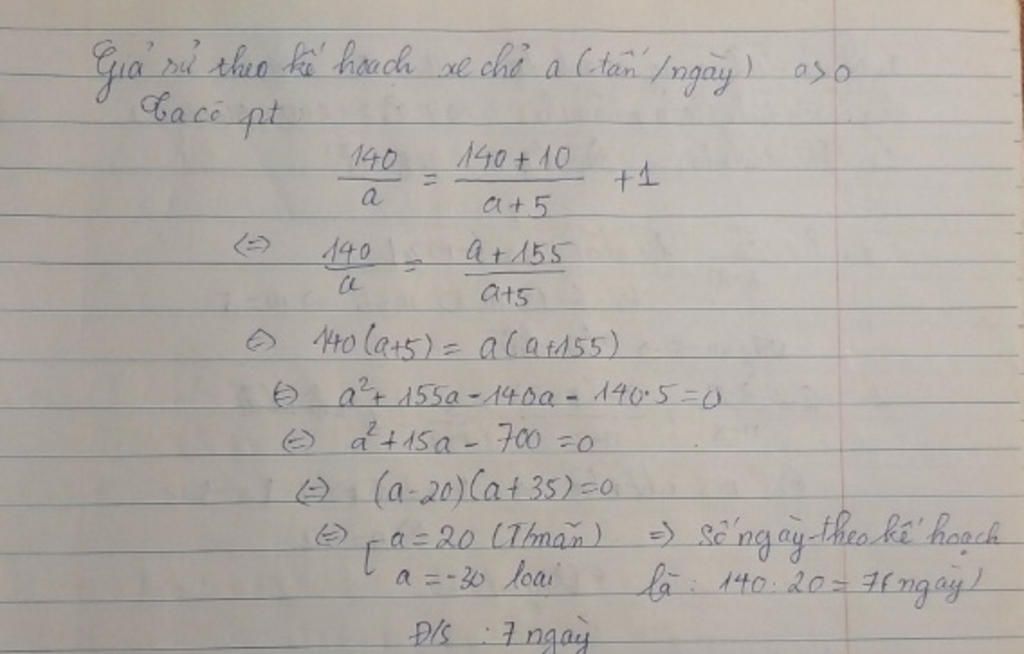 Giả sử theo kế hoạch xe chở a (tấn/ngày) a>0
Ta có pt
140/a = (140+10)/(a+5) +1
(=) 140/a = (a+155)/(a+5)
(=) 140(a+5) = a(a+155)
(=) a²+155a-140a-140·5=0
(=) a²+15a-700=0
(=) (a-20)(a+35)=0
(=) [ a=20 (Tmãn) => Số ngày theo kế hoạch
a=-30 loại là: 140:20=7(ngày)
Đ/S : 7 ngày